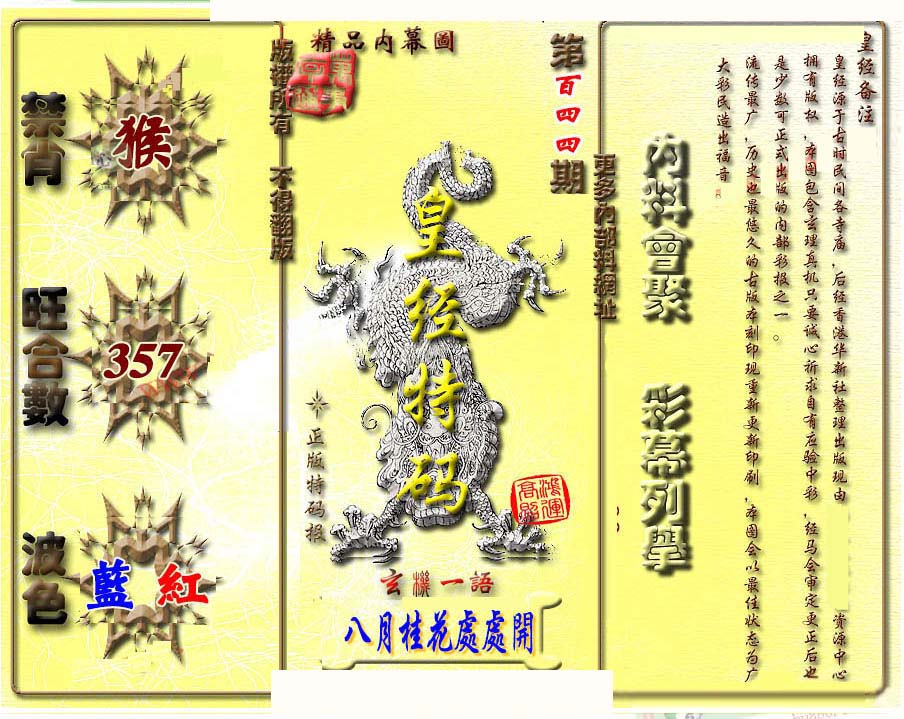 皇经备注
皇经源于古时民间各寺庙,后经香港华新社整理出版现由 资源中心
拥有版权,本图包含玄理真机只要诚心祈求自有应验中彩,经马会审定更正后也
是少数可正式出版的内部彩报之一。
流传最广,历史也最悠久的古版本刻印现重新更新印刷,本图会以最佳状态为广
大彩民造出福音
內料會聚
彩幕列擧
更多內部料網址
第百四四期
精品內幕圖
皇经特码
鴻運高照
正版特码报
玄機一語
八月桂花處處開
版權所有 不得翻版
禁肖
猴
旺合數
357
波色
藍 紅